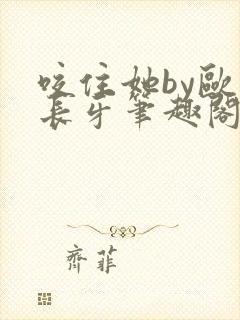 咬住她by歐
長牙筆趣閣
齊菲